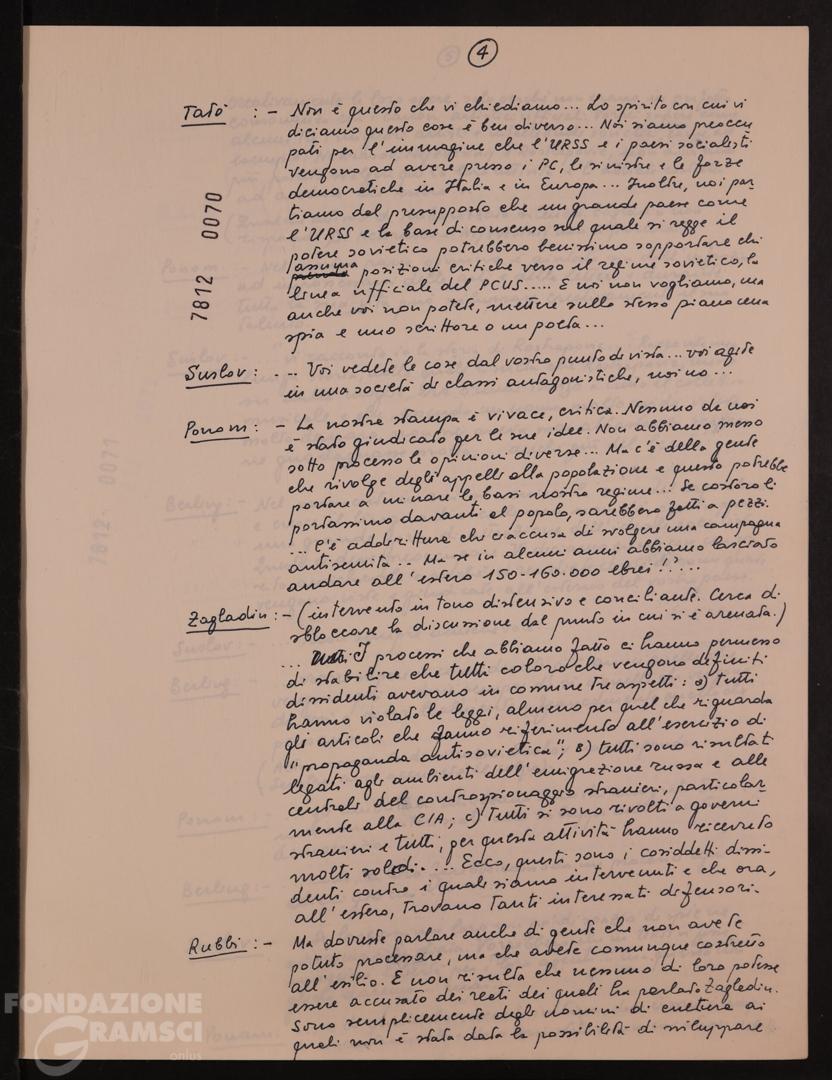 4
Tatò : - Non è questo che vi chiediamo... Lo spirito con cui vi
diciamo queste cose è ben diverso... Noi siamo preoccu
pati per l'immagine che l'URSS e i paesi socialisti
vengono ad avere presso i PC, le sinistre e le forze
democratiche in Italia e in Europa... Inoltre, noi par
tiamo dal presupposto che un grande paese come
l'URSS e la base di consenso sul quale si regge il
potere sovietico potrebbero benissimo sopportare chi
assuma posizioni critiche verso il regime sovietico, la
linea ufficiale del PCUS..... E noi non vogliamo, ma
anche voi non potete, mettere sullo stesso piano una
spia e uno scrittore o un poeta...
7812 0070
Suslov : ... Voi vedete le cose dal vostro punto di vista... voi agite
in una società di classi antagonistiche, noi no...
Ponom : - La nostra stampa è vivace, critica. Nessuno da noi
è stato giudicato per le sue idee. Non abbiamo messo
sotto processo le opinioni diverse... Ma c'è della gente
che rivolge degli appelli alla popolazione e questo potrebbe
portare a minare le basi nostro regime... Se costoro li
portassimo davanti al popolo, sarebbero fatti a pezzi.
... C'è addirittura chi ci accusa di svolgere una campagna
antisemita.. Ma se in alcuni anni abbiamo lasciato
andare all'estero 150-160.000 ebrei!?...
7812 0071
Zagladin : - (intervento in tono distensivo e conciliante. Cerca di
sbloccare la discussione dal punto in cui si è arenata.)
... I processi che abbiamo fatto ci hanno permesso
di stabilire che tutti coloro che vengono definiti
dissidenti avevano in comune tre aspetti: a) tutti
hanno violato le leggi, almeno per quel che riguarda
gli articoli che fanno riferimento all'esercizio di
"propaganda antisovietica"; b) tutti sono risultati
legati agli ambienti dell'emigrazione russa e alle
centrali del controspionaggio straniero, particolar-
mente alla CIA; c) tutti si sono rivolti a governi
stranieri e tutti, per questa attività hanno ricevuto
molti soldi.... Ecco, questi sono i cosiddetti dissi-
denti contro i quali siamo intervenuti e che ora,
all'estero, trovano tanti interessati difensori.
Rubbi : - Ma dovreste parlare anche di gente che non avete
potuto processare, ma che avete comunque costretto
all'esilio. E non risulta che nessuno di loro potesse
essere accusato dei reati dei quali ha parlato Zagladin.
Sono semplicemente degli uomini di cultura ai
quali non è stata data la possibilità di sviluppare
FONDAZIONE
GRAMSCI
onlus